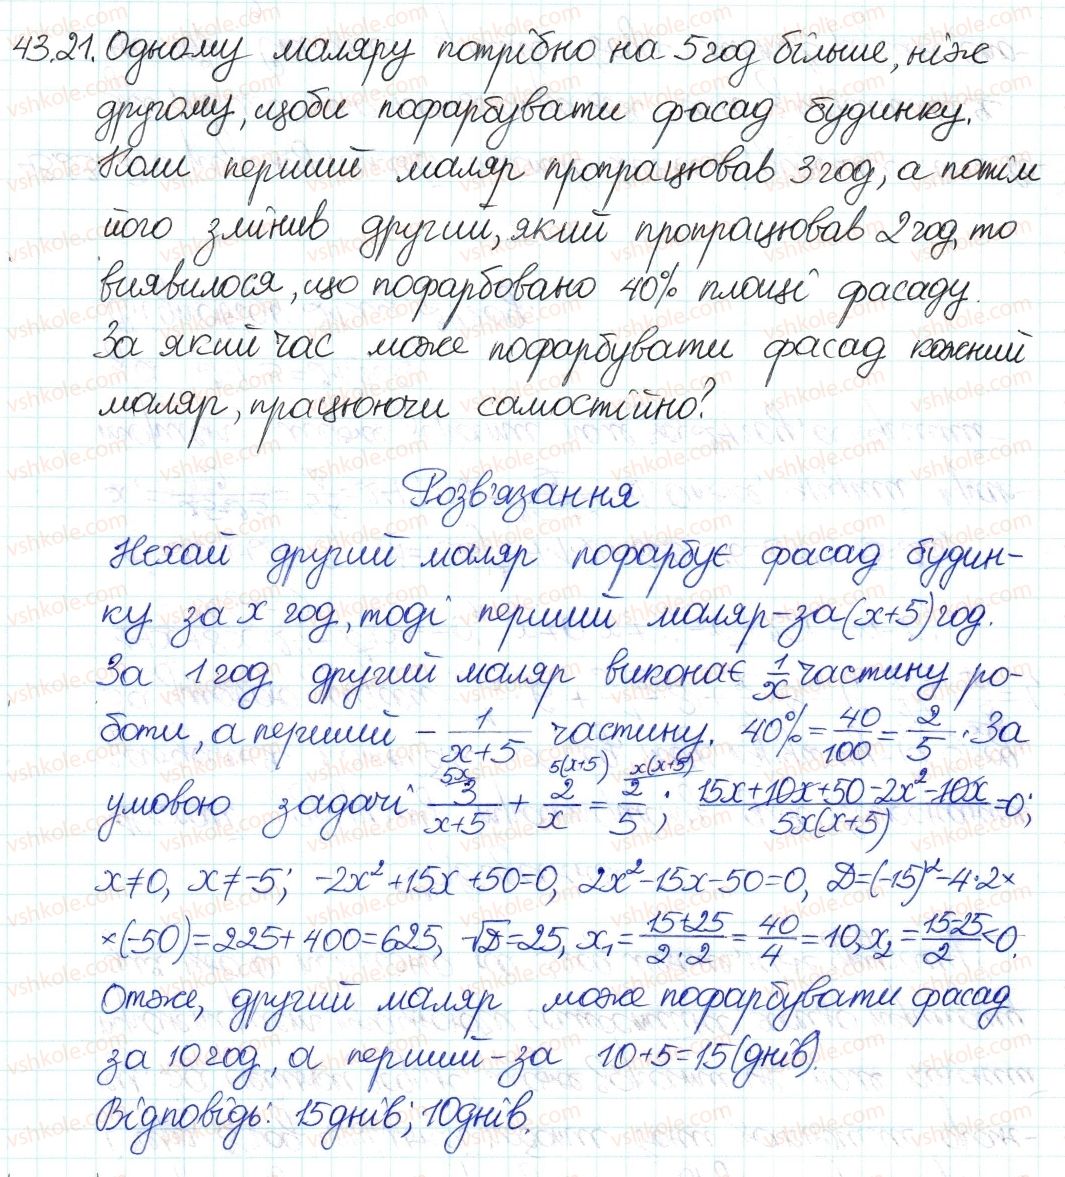 43.21. Одному маляру потрібно на 5 год більше, ніж
другому, щоби пофарбувати фасад будинку.
Коли перший маляр пропрацював 3 год, а потім
його змінив другий, який пропрацював 2 год, то
виявилося, що пофарбовано 40% площі фасаду.
За який час може пофарбувати фасад кожний
маляр, працюючи самостійно?
Розв'язання
Нехай другий маляр пофарбує фасад будин-
ку за x год, тоді перший маляр - за (x+5) год.
За 1 год другий маляр виконає 1/x частину ро-
боти, а перший - 1/(x+5) частину. 40% = 40/100 = 2/5. За
умовою задачі 5x 3/(x+5) + 5(x+5) 2/x = x(x+5) 2/5; (15x+10x+50-2x²-10x)/(5x(x+5)) = 0;
x≠0, x≠-5; -2x²+15x+50=0, 2x²-15x-50=0, D=(-15)²-4·2×
×(-50)=225+400=625, √D=25, x₁=(15+25)/(2·2)=40/4=10, x₂=(15-25)/2<0.
Отже, другий маляр може пофарбувати фасад
за 10 год, а перший - за 10+5=15 (днів).
Відповідь: 15 днів; 10 днів.
vshkole.com